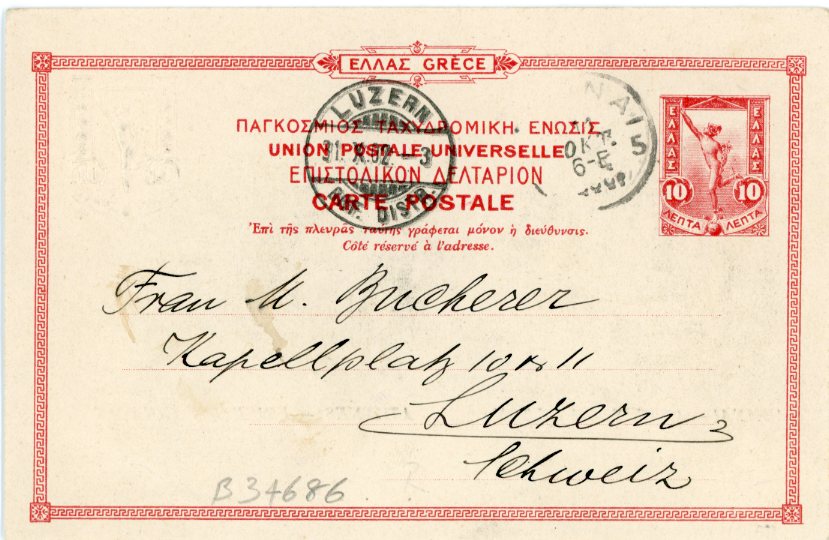 ΕΛΛΑΣ GRÈCE
LUZERN
31. X. 02. — 3
ΝΑΙ 5
ΟΚΤ.
6-Ε
ΠΑΓΚΟΣΜΙΟΣ ΤΑΧΥΔΡΟΜΙΚΗ ΕΝΩΣΙΣ
UNION POSTALE UNIVERSELLE
ΕΠΙΣΤΟΛΙΚΟΝ ΔΕΛΤΑΡΙΟΝ
CARTE POSTALE
Ἐπὶ τῆς πλευρᾶς ταύτης γράφεται μόνον ἡ διεύθυνσις.
Côté réservé à l'adresse.
ΕΛΛΑΣ ΕΛΛΑΣ
10 10
ΛΕΠΤΑ ΛΕΠΤΑ
Frau M. Bucherer
Kapellplatz 10 & 11
Luzern
Schweiz
B34686